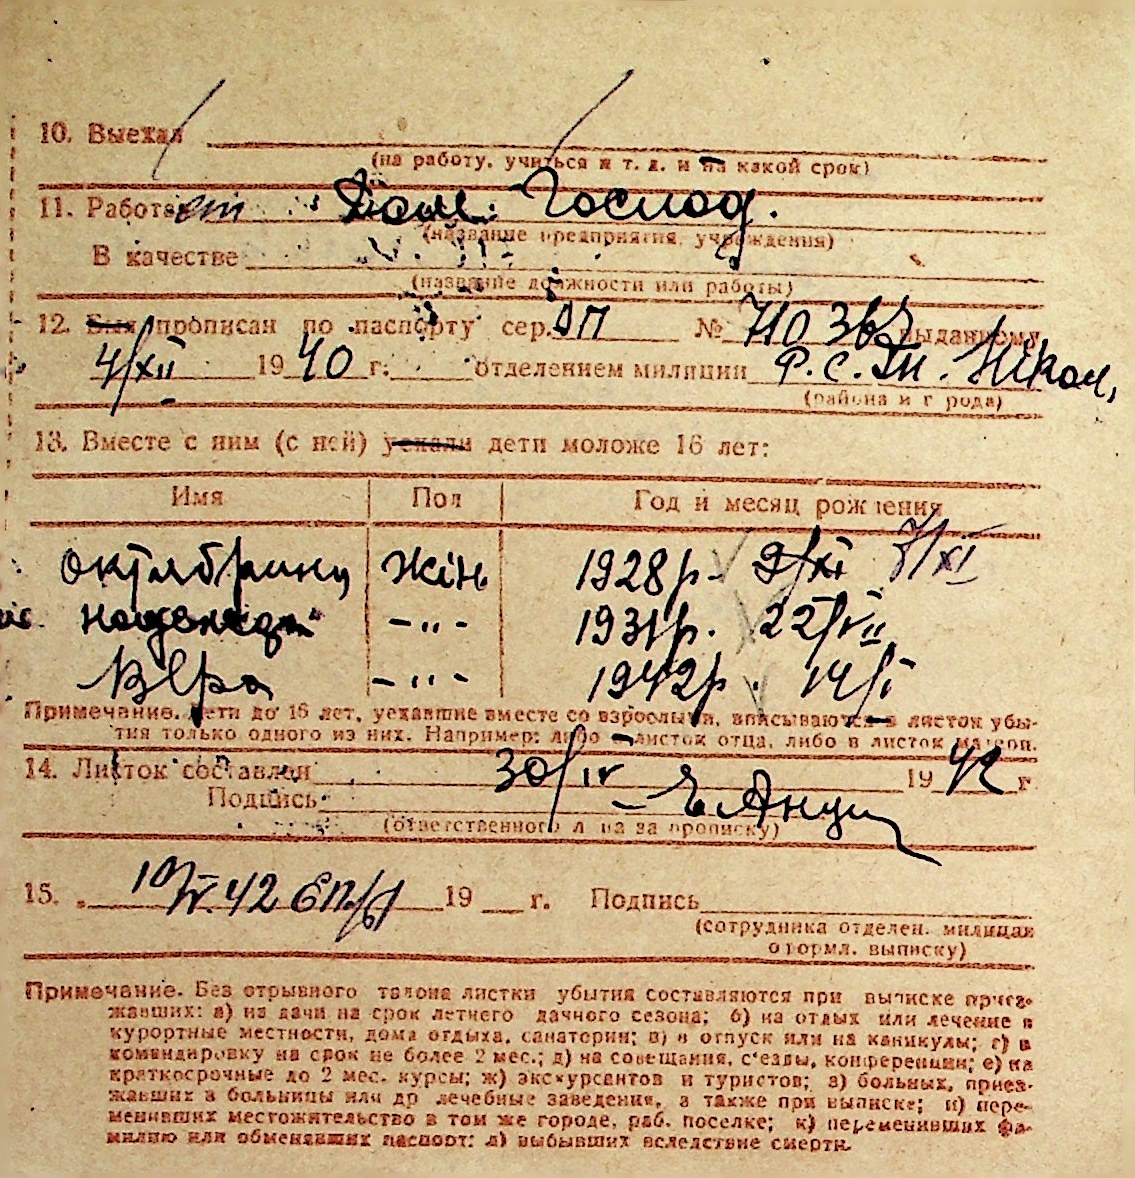 10. Выехал
(на работу, учиться и т. д. и на какой срок)
11. Работает Дом. Господ.
(название предприятия, учреждения)
В качестве
(название должности или работы)
12. Был прописан по паспорту сер. ЭП № 710363 выданному
4/XII 1940 г. отделением милиции Р. С.
(района и города)
13. Вместе с ним (с ней) уехали дети моложе 16 лет:
Имя Пол Год и месяц рождения
Октябрина Жін. 1928 р. 9/XI 7/XI
Надежда -"- 1931 р. 22/VII
Вера -"- 1942 р. 14/I
Примечание. Дети до 16 лет, уехавшие вместе со взрослыми, вписываются в листок убы-
тия только одного из них. Например: либо в листок отца, либо в листок матери.
14. Листок составлен 30/IV 1942 г.
Подпись
(ответственного лица за прописку)
15. 10/V.42 19 г. Подпись
(сотрудника отделен. милиции
оформл. выписку)
Примечание. Без отрывного талона листки убытия составляются при выписке приез-
жавших: а) на дачи на срок летнего дачного сезона; б) на отдых или лечение в
курортные местности, дома отдыха, санатории; в) в отпуск или на каникулы; г) в
командировку на срок не более 2 мес.; д) на совещания, с'езды, конференции; е) на
краткосрочные до 2 мес. курсы; ж) экскурсантов и туристов; з) больных, приез-
жавших в больницы или др лечебные заведения, а также при выписке; и) пере-
менивших местожительство в том же городе, раб. поселке; к) переменивших фа-
милию или обменявших паспорт; л) выбывших вследствие смерти.